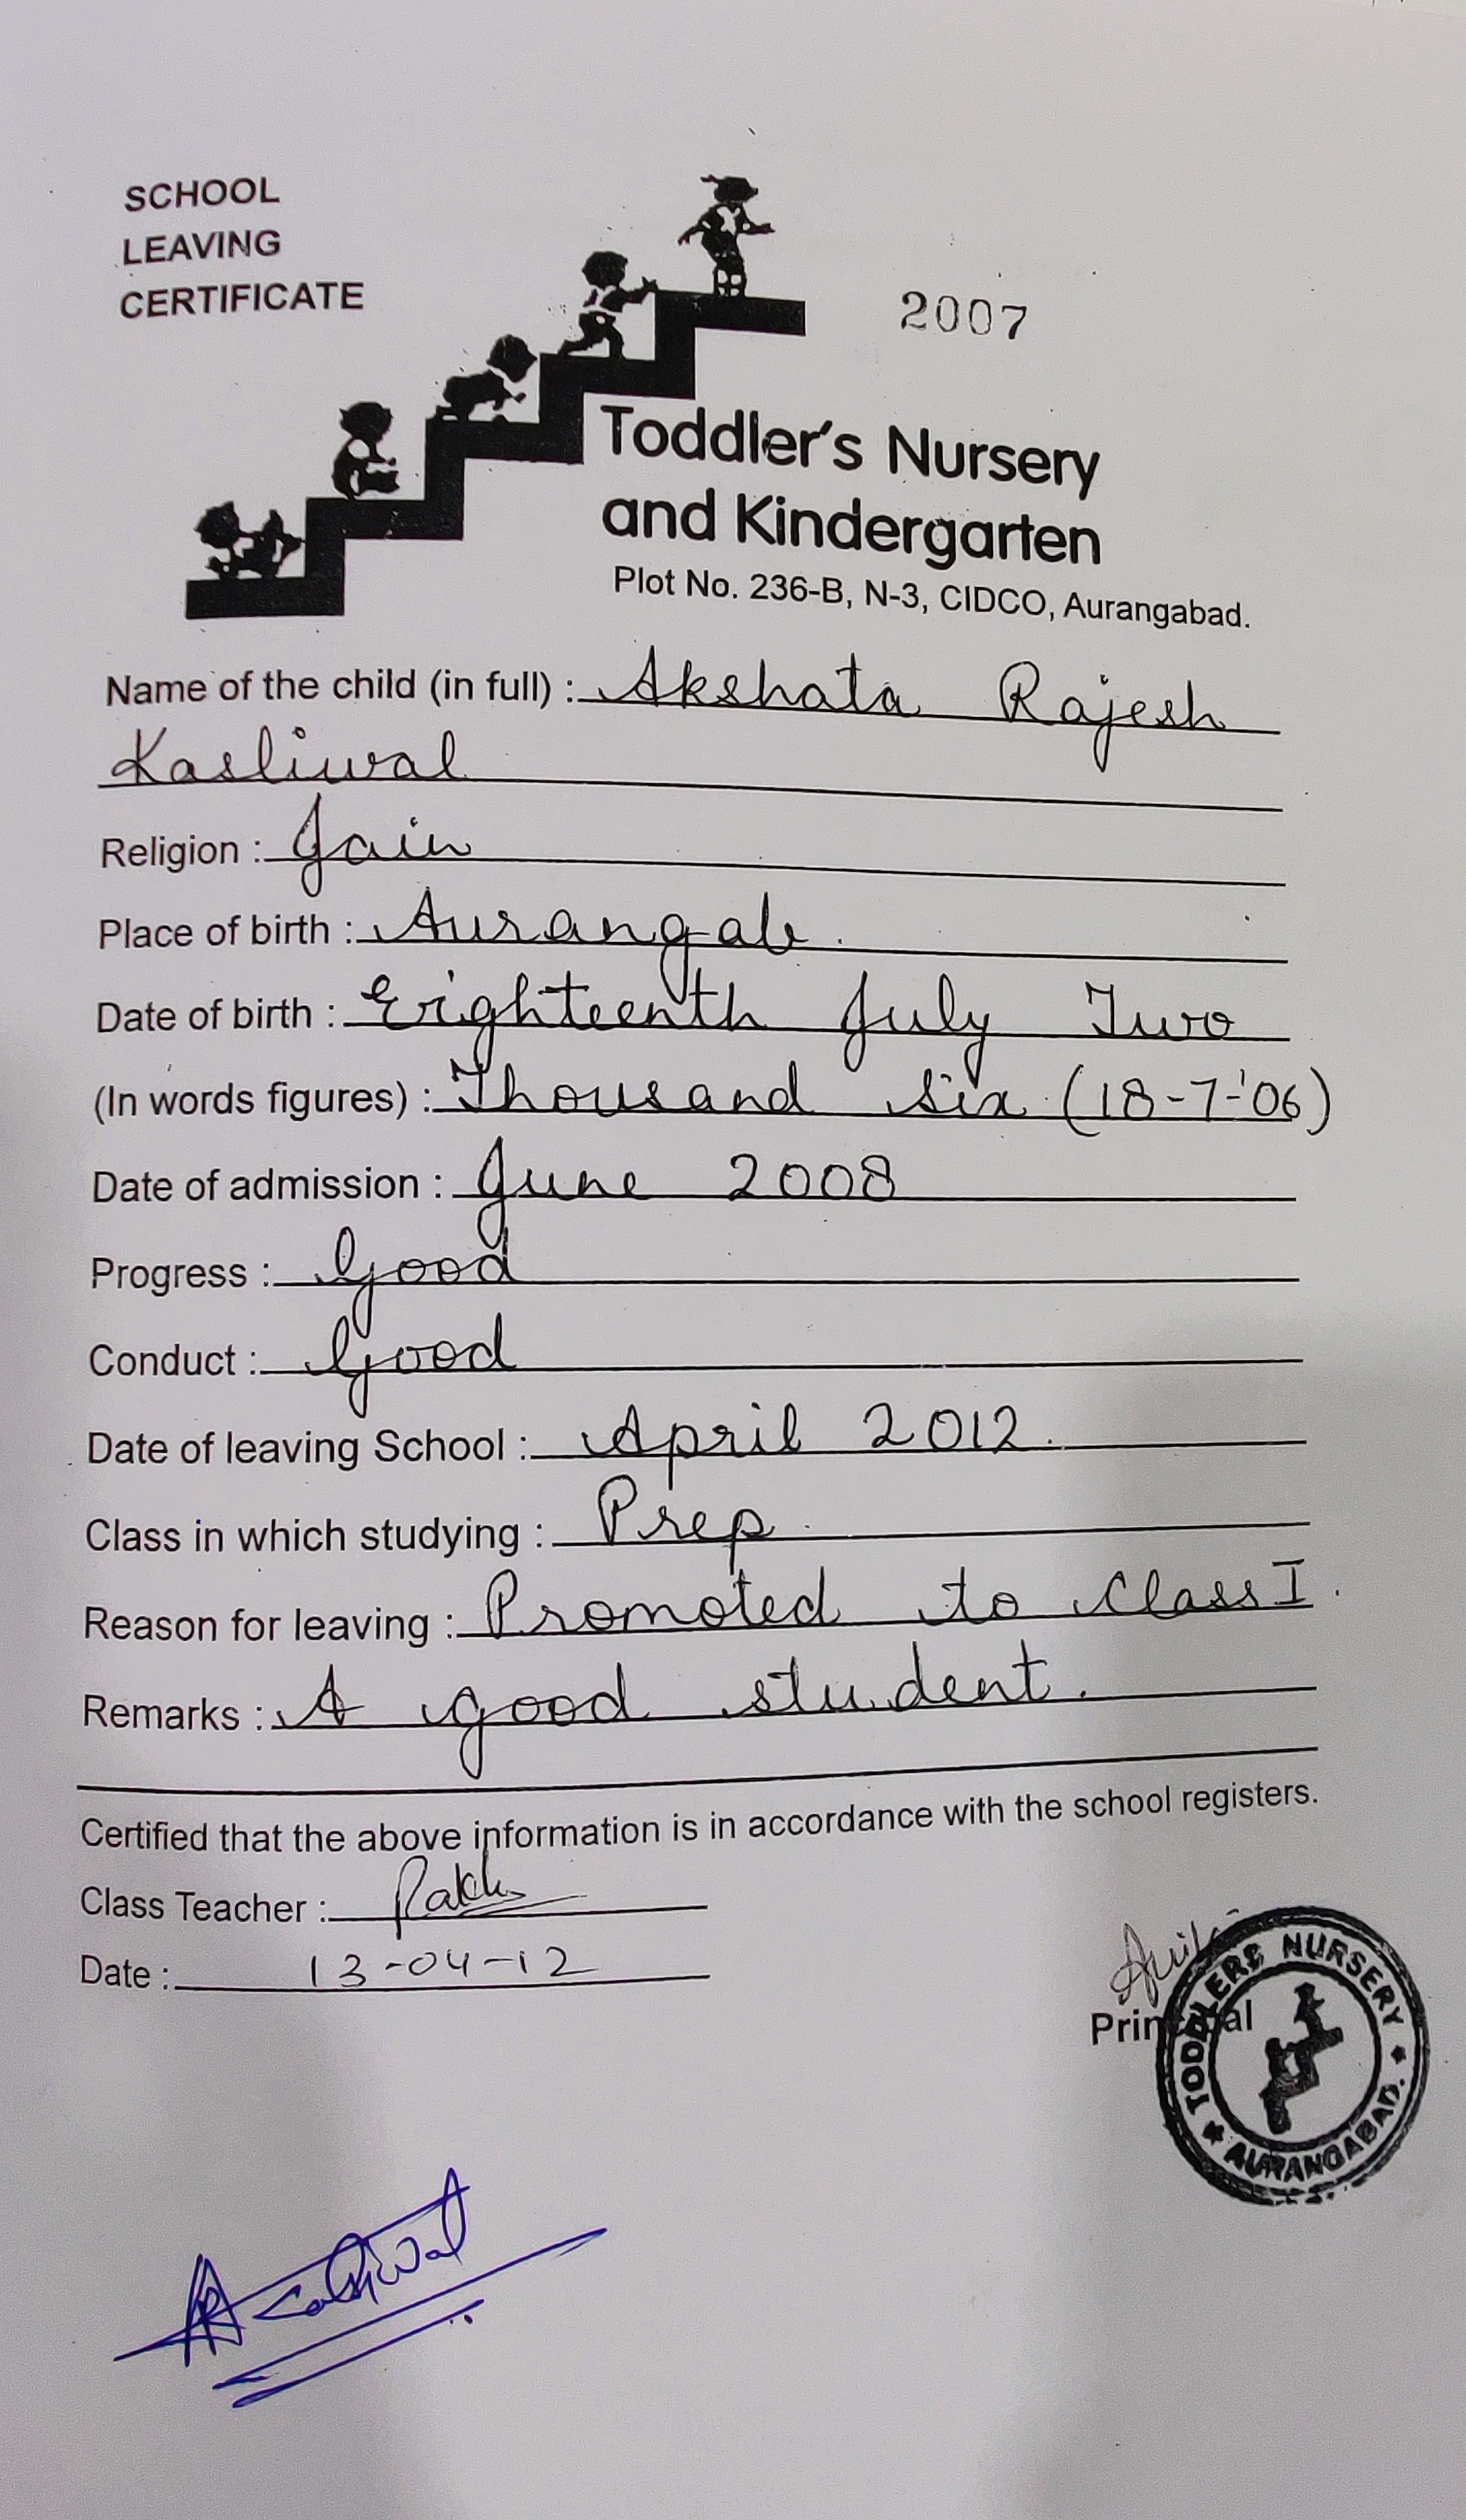 SCHOOL
LEAVING
CERTIFICATE
2007
Toddler's Nursery
and Kindergarten
Plot No. 236-B, N-3, CIDCO, Aurangabad.
Name of the child (in full) : Akshata Rajesh
Kasliwal
Religion : Jain
Place of birth : Aurangab.
Date of birth : Eighteenth July Two
(In words figures) : Thousand six (18-7-'06)
Date of admission : June 2008
Progress : Good
Conduct : Good
Date of leaving School : April 2012.
Class in which studying : Prep
Reason for leaving : Promoted to Class I.
Remarks : A good student.
Certified that the above information is in accordance with the school registers.
Class Teacher :
Date : 13-04-12
Principal
TODDLERS NURSERY
AURANGABAD.